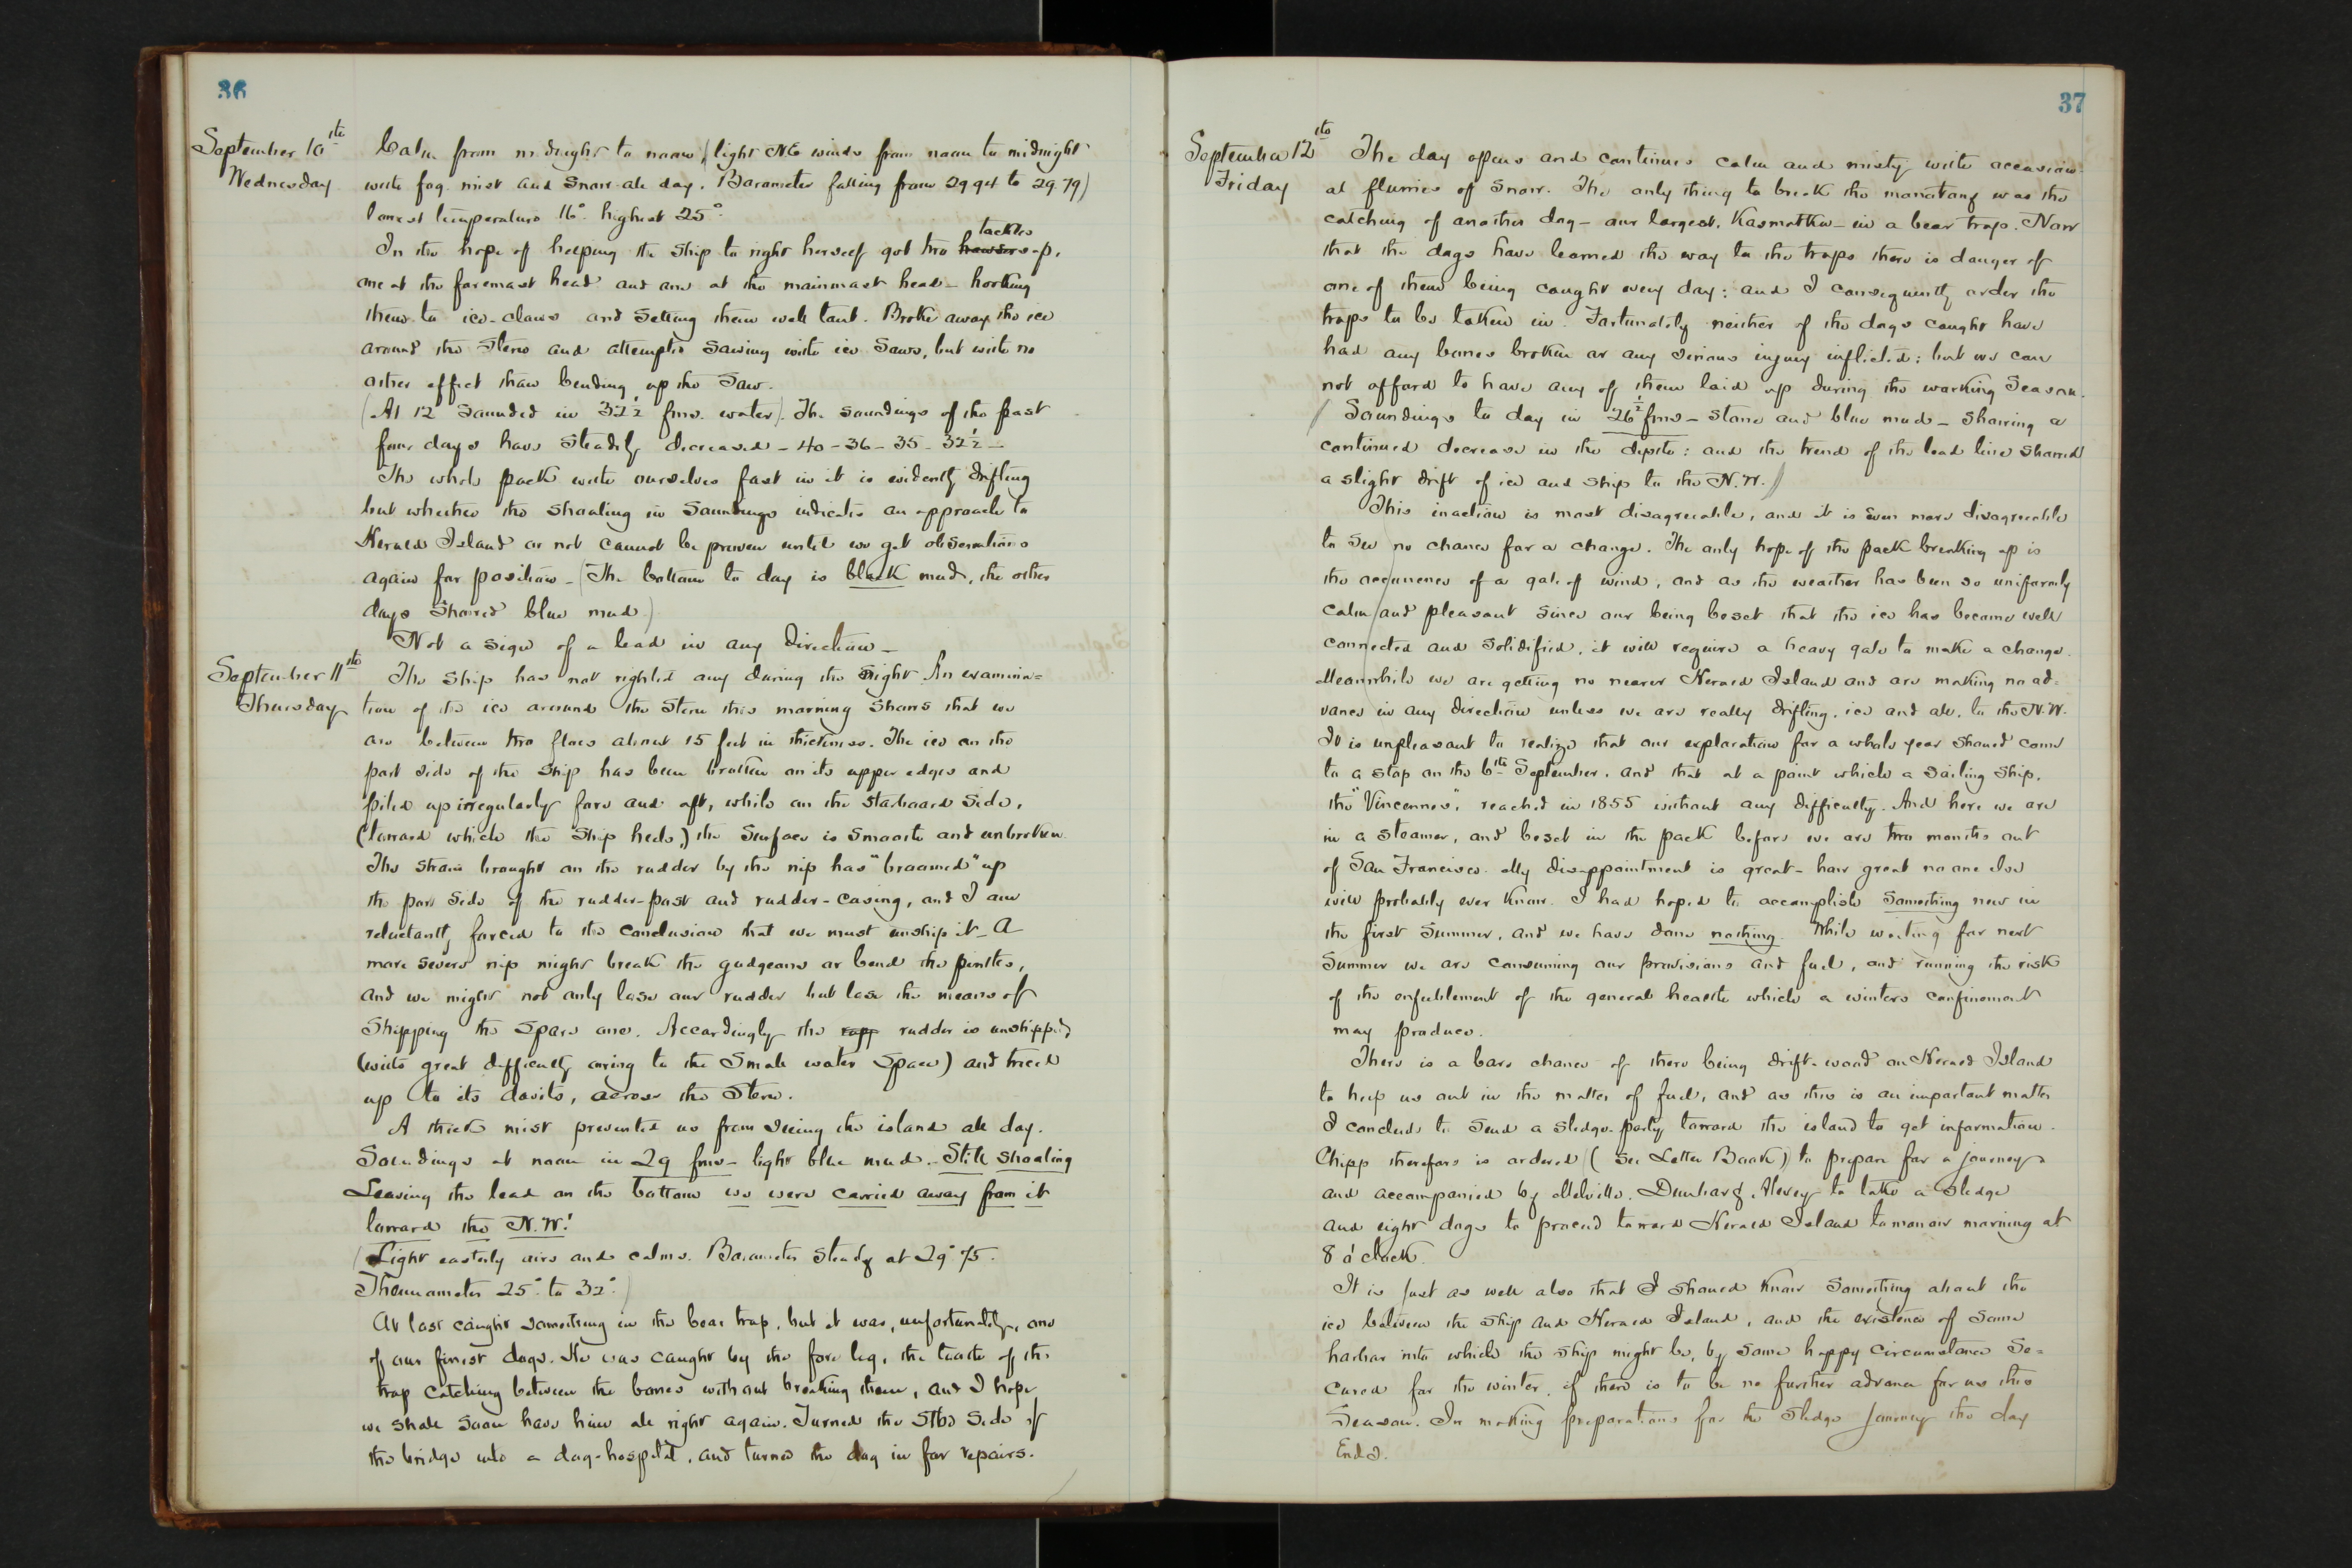 36
September 10th
Wednesday
Calm from midnight to noon (light NE winds from noon to midnight
with fog mist and snow all day. Barometer falling from 29.94 to 29.79)
lowest temperature 16° highest 25°.
tackles
In the hope of helping the ship to right herself got two hawsers up,
one at the foremast head and one at the mainmast head – hooking
them to ice-claws and setting them well taut. Broke away the ice
around the stern and attempted sawing with ice saws, but with no
other effect than bending up the saw.
(At 12 sounded in 32½ fms. water). The soundings of the past
four days have steadily decreased – 40 – 36 – 35 – 32½ –
The whole pack with ourselves fast in it is evidently drifting
but whether the shoaling in soundings indicates an approach to
Herald Island or not cannot be proven until we get observations
again for position – (The bottom to day is black mud, the other
days showed blue mud)
Not a sign of a lead in any direction –
September 11th
Thursday
The ship has not righted any during the night. An examina=
tion of the ice around the stern this morning shows that we
are between two floes about 15 feet in thickness. The ice on the
port side of the ship has been broken on its upper edges and
piled up irregularly fore and aft, while on the starboard side,
(toward which the ship heels,) the surface is smooth and unbroken
The strain brought on the rudder by the nip has "broomed" up
the port side of the rudder-post and rudder-casing, and I am
reluctantly forced to the conclusion that we must unship it – A
more severe nip might break the gudgeons or bend the pintles,
and we might not only lose our rudder but lose the means of
shipping the spare one. Accordingly the rudder is unshipped
(with great difficulty owing to the small water space) and triced
up to its davits, across the stern.
A thick mist prevented us from seeing the island all day.
Soundings at noon in 29 fms – light blue mud. Still shoaling
Leaving the lead on the bottom we were carried away from it
toward the N.W.!
(Light easterly airs and calms. Barometer steady at 29.75.
Thermometer 25° to 32°.)
At last caught something in the bear trap, but it was, unfortunately, one
of our finest dogs. He was caught by the fore leg, the teeth of the
trap catching between the bones without breaking them, and I hope
we shall soon have him all right again. Turned the Stbd side of
the bridge into a dog-hospital, and turned the dog in for repairs.
37
September 12th
Friday
The day opens and continues calm and misty with occasion-
al flurries of snow. The only thing to break the monotony was the
catching of another dog – our largest, Kasmatka – in a bear trap. Now
that the dogs have learned the way to the traps there is danger of
one of them being caught every day: and I consequently order the
traps to be taken in. Fortunately neither of the dogs caught have
had any bones broken or any serious injury inflicted: but we can
not afford to have any of them laid up during the working season.
(Soundings to day in 26½ fms – stone and blue mud – showing a
continued decrease in the depth: and the trend of the lead line showed
a slight drift of ice and ship to the N.W.)
This inaction is most disagreeable, and it is even more disagreeable
to see no chance for a change. The only hope of the pack breaking up is
the occurrence of a gale of wind, and as the weather has been so uniformly
calm and pleasant since our being beset that the ice has become well
connected and solidified, it will require a heavy gale to make a change.
Meanwhile we are getting no nearer Herald Island and are making no ad-
vance in any direction unless we are really drifting, ice and all, to the N.W.
It is unpleasant to realize that our exploration for a whole year should come
to a stop on the 6th September, and that at a point which a sailing ship,
the "Vincennes", reached in 1855 without any difficulty. And here we are
in a steamer, and beset in the pack before we are two months out
of San Francisco. My disappointment is great – how great no one else
will probably ever know. I had hoped to accomplish something new in
the first summer, and we have done nothing. While waiting for next
summer we are consuming our provisions and fuel, and running the risk
of the enfeeblement of the general health which a winters confinement
may produce.
There is a bare chance of there being drift-wood on Herald Island
to help us out in the matter of fuel, and as this is an important matter
I conclude to send a sledge-party toward the island to get information.
Chipp therefore is ordered (see Letter Book) to prepare for a journey
and accompanied by Melville, Dunbar & Alexey to take a sledge
and eight dogs to proceed toward Herald Island tomorrow morning at
8 o'clock.
It is just as well also that I should know something about the
ice between the ship and Herald Island, and the existence of some
harbor into which the ship might be, by some happy circumstance se=
cured for the winter, if there is to be no further advance for us this
season. In making preparations for the sledge journey the day
ends.